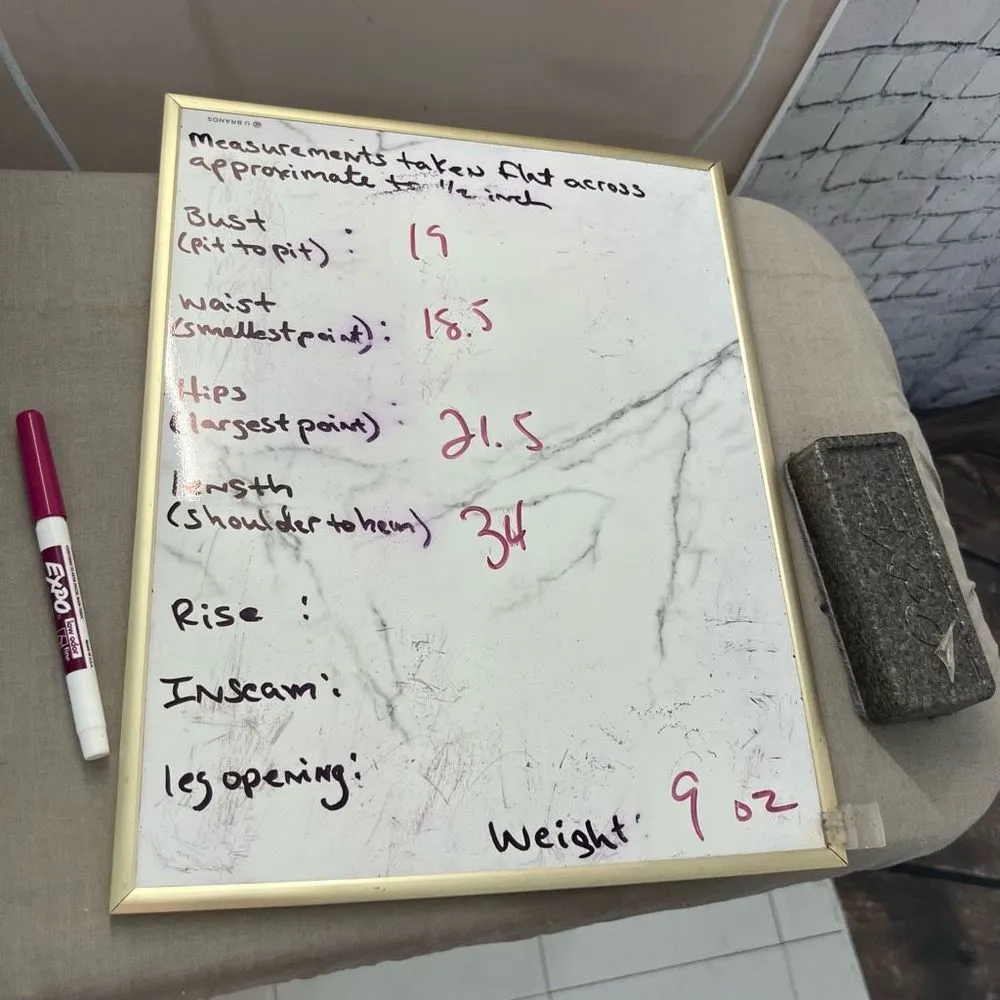 U BRANDS
Measurements taken flat across
approximate to 1/2 inch
Bust
(pit to pit) : 19
Waist
(smallest point) : 18.5
Hips
(largest point) : 21.5
length
(shoulder to hem) 34
Rise :
Inseam :
leg opening :
Weight : 9 oz
EXPO
low odor
fine